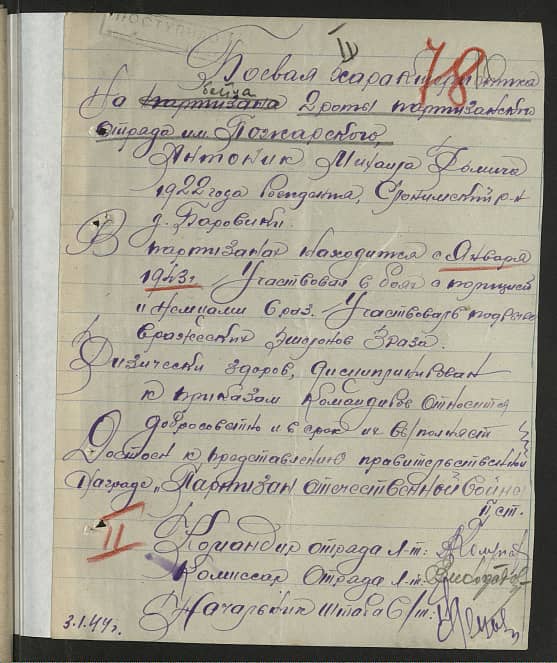 ПОСТУПИЛО
III
78
Боевая характеристика
бойца
На партизана 2 роты партизанского
отряда им. Пожарского,
Антоник Михаила Фомича
1922 года рождения, Слонимский р-н
д. Боровики.
В партизанах находится с Января
1943 г. Участвовал в боях с полицией
и немцами 6 раз. Участвовал в подрыве
вражеских эшелонов 3 раза.
Физически здоров, дисциплинирован
к приказам Командиров относится
добросовестно и в срок их выполняет
Достоен к представлению правительственной
награде „Партизан Отечественной войны
II ст.
II
Командир отряда л-т:
Комиссар Отряда л-т:
Начальник штаба с/т:
3.1.44г.